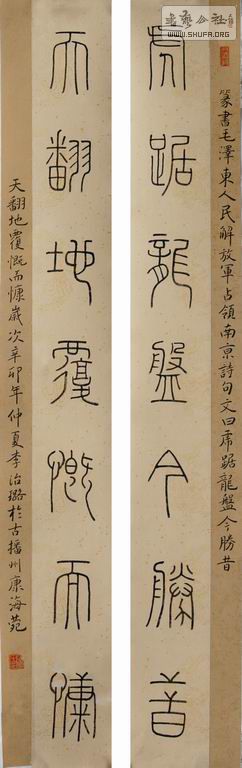 书艺公社
WWW.SHUFA.ORG
篆書毛澤東人民解放軍占領南京詩句文曰虎踞龍盤今勝昔
虎踞龍盤今勝昔
天翻地覆慨而慷
天翻地覆慨而慷歲次辛卯年仲夏李治璐於古播州康海苑